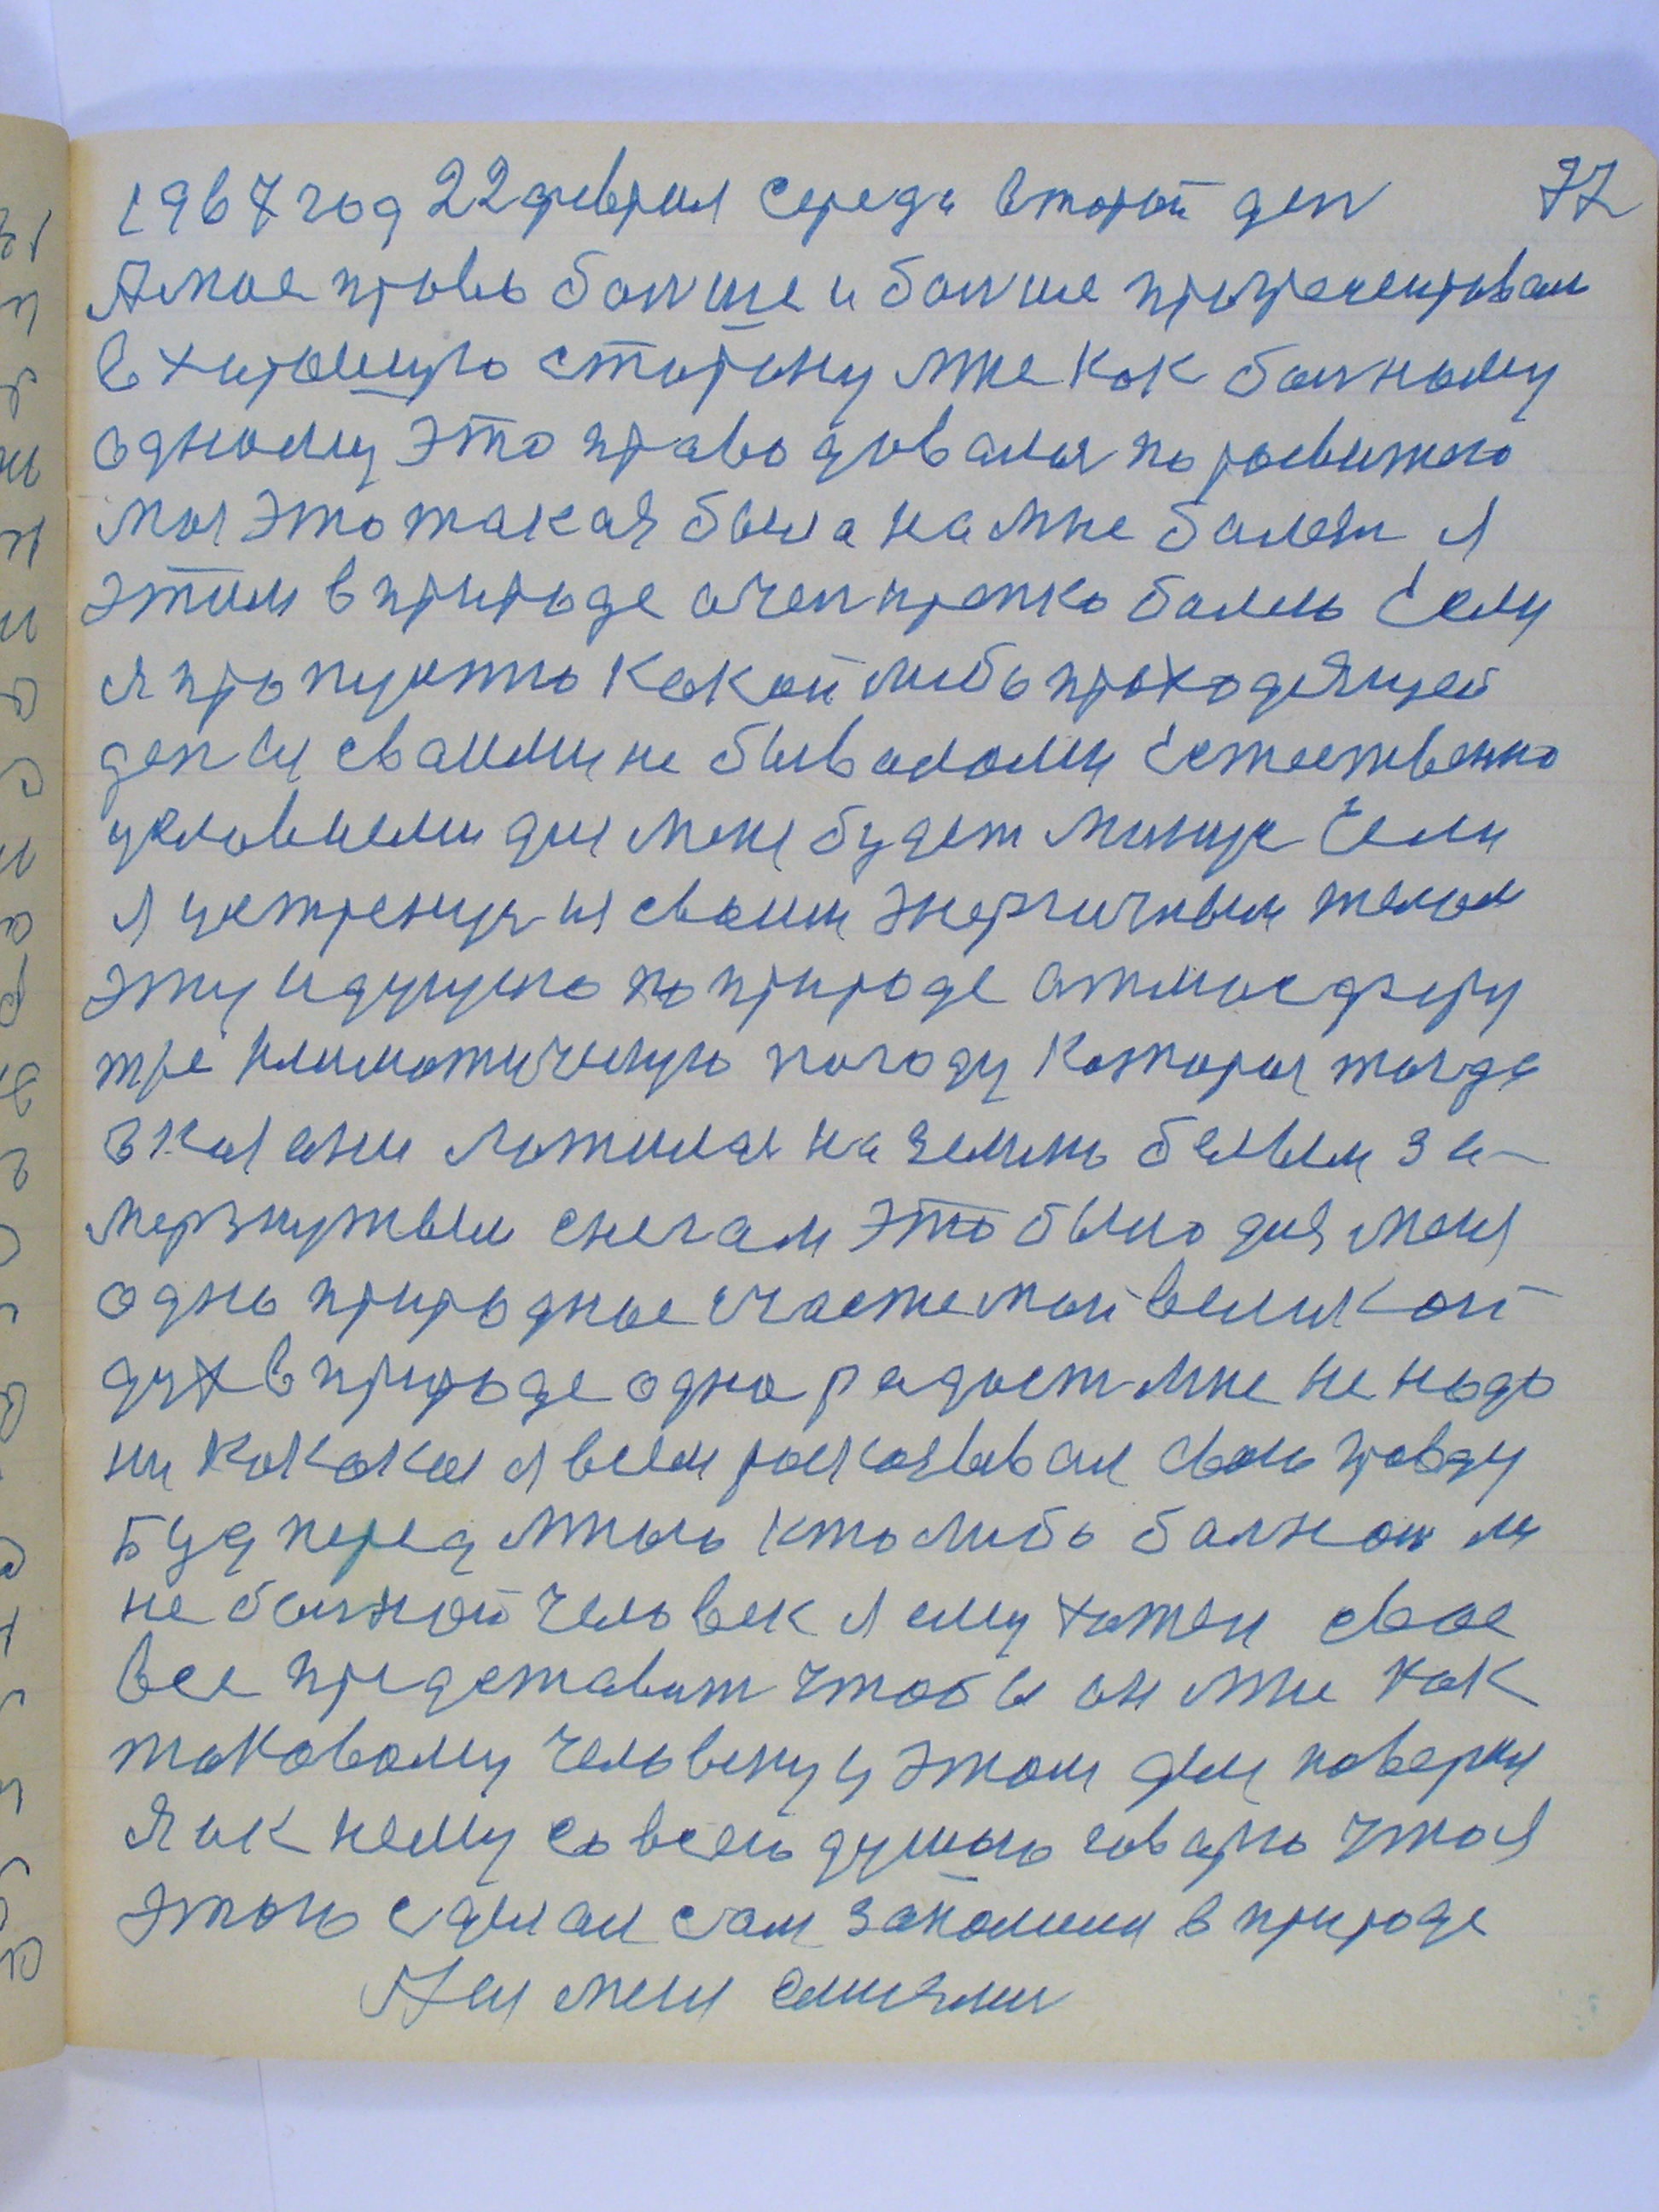 1967 год 22 февраля середа второй ден 77
А мое право болше и болше прогресировал
в хорошую сторону мне как болному
одному это право довалися по розвитию
моя это такая была на мне болезн я
этим в природе очен крепко болею Если
я пропущю какой либо проходяящей
ден и с воими не бываломи Естественно
условиеми для меня будет минус Если
я устренуся своим энергичным телом
эту идущую по природе атмосферу
тре климотическую погоду Которая тогда
ложилася на землю белым за-
мерзнутым снегам это было для меня
одно природное счасте мой великой
дух в природе одна радост мне не надо
ни я всем росказывал свою правду
Буд перед мною кто либо болной и
не болной человек я ему хотел свое
все представит чтобы он мне как
таковому человеку у этом деле поверил
Я и к нему со всею душою говарю что я
этого сделал сам в природе